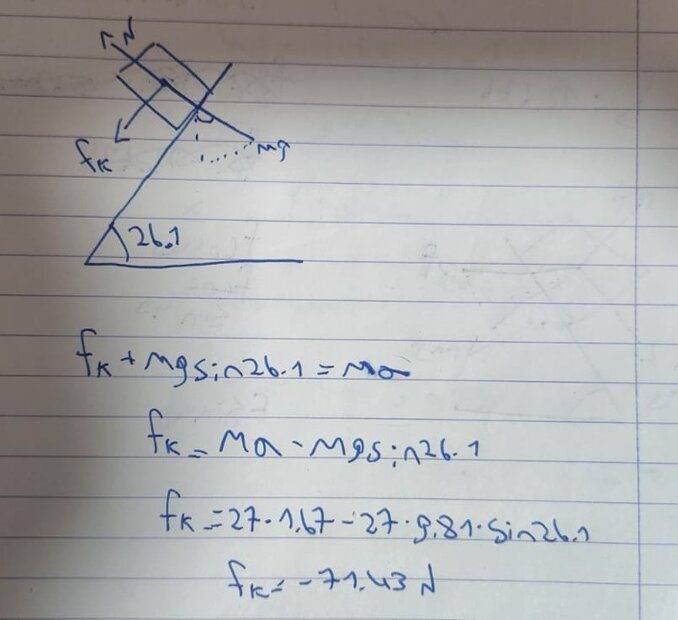 N
fk
mg
26.1
fk + mg sin 26.1 = ma
fk = ma - mg sin 26.1
fk = 27·1.67 - 27·9.81·sin 26.1
fk = -71.43 N